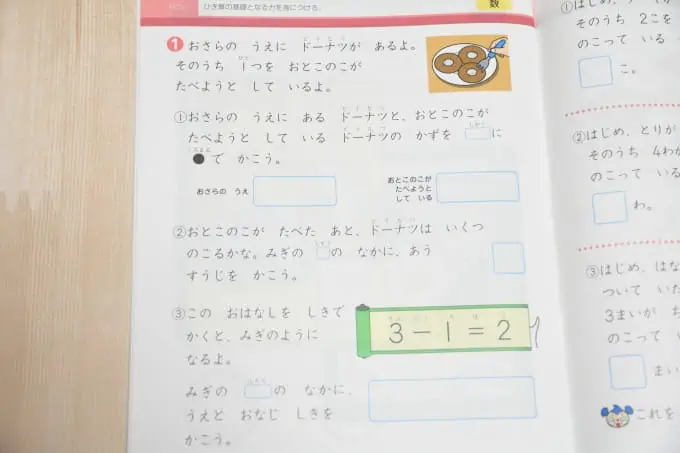 ひき算の基礎となる力を身につける。
数
1 おさらの うえに ドーナツが あるよ。
そのうち 1つを おとこのこが
たべようと して いるよ。
①おさらの うえに ある ドーナツと、おとこのこが
たべようと して いる ドーナツの かずを □に
●で かこう。
おさらの うえ
おとこのこが
たべようと
して いる
②おとこのこが たべた あと、ドーナツは いくつ
のこるかな。みぎの □の なかに、あう
すうじを かこう。
③この おはなしを しきで
かくと、みぎのように
なるよ。
3－1＝2
みぎの □の なかに、
うえと おなじ しきを
かこう。
①はじめ、
そのうち 2こを
のこって いる
こ。
②はじめ、とりが
そのうち 4わが
のこって いる
わ。
③はじめ、はな
ついて いた
3まいが
のこって い
まい
これを